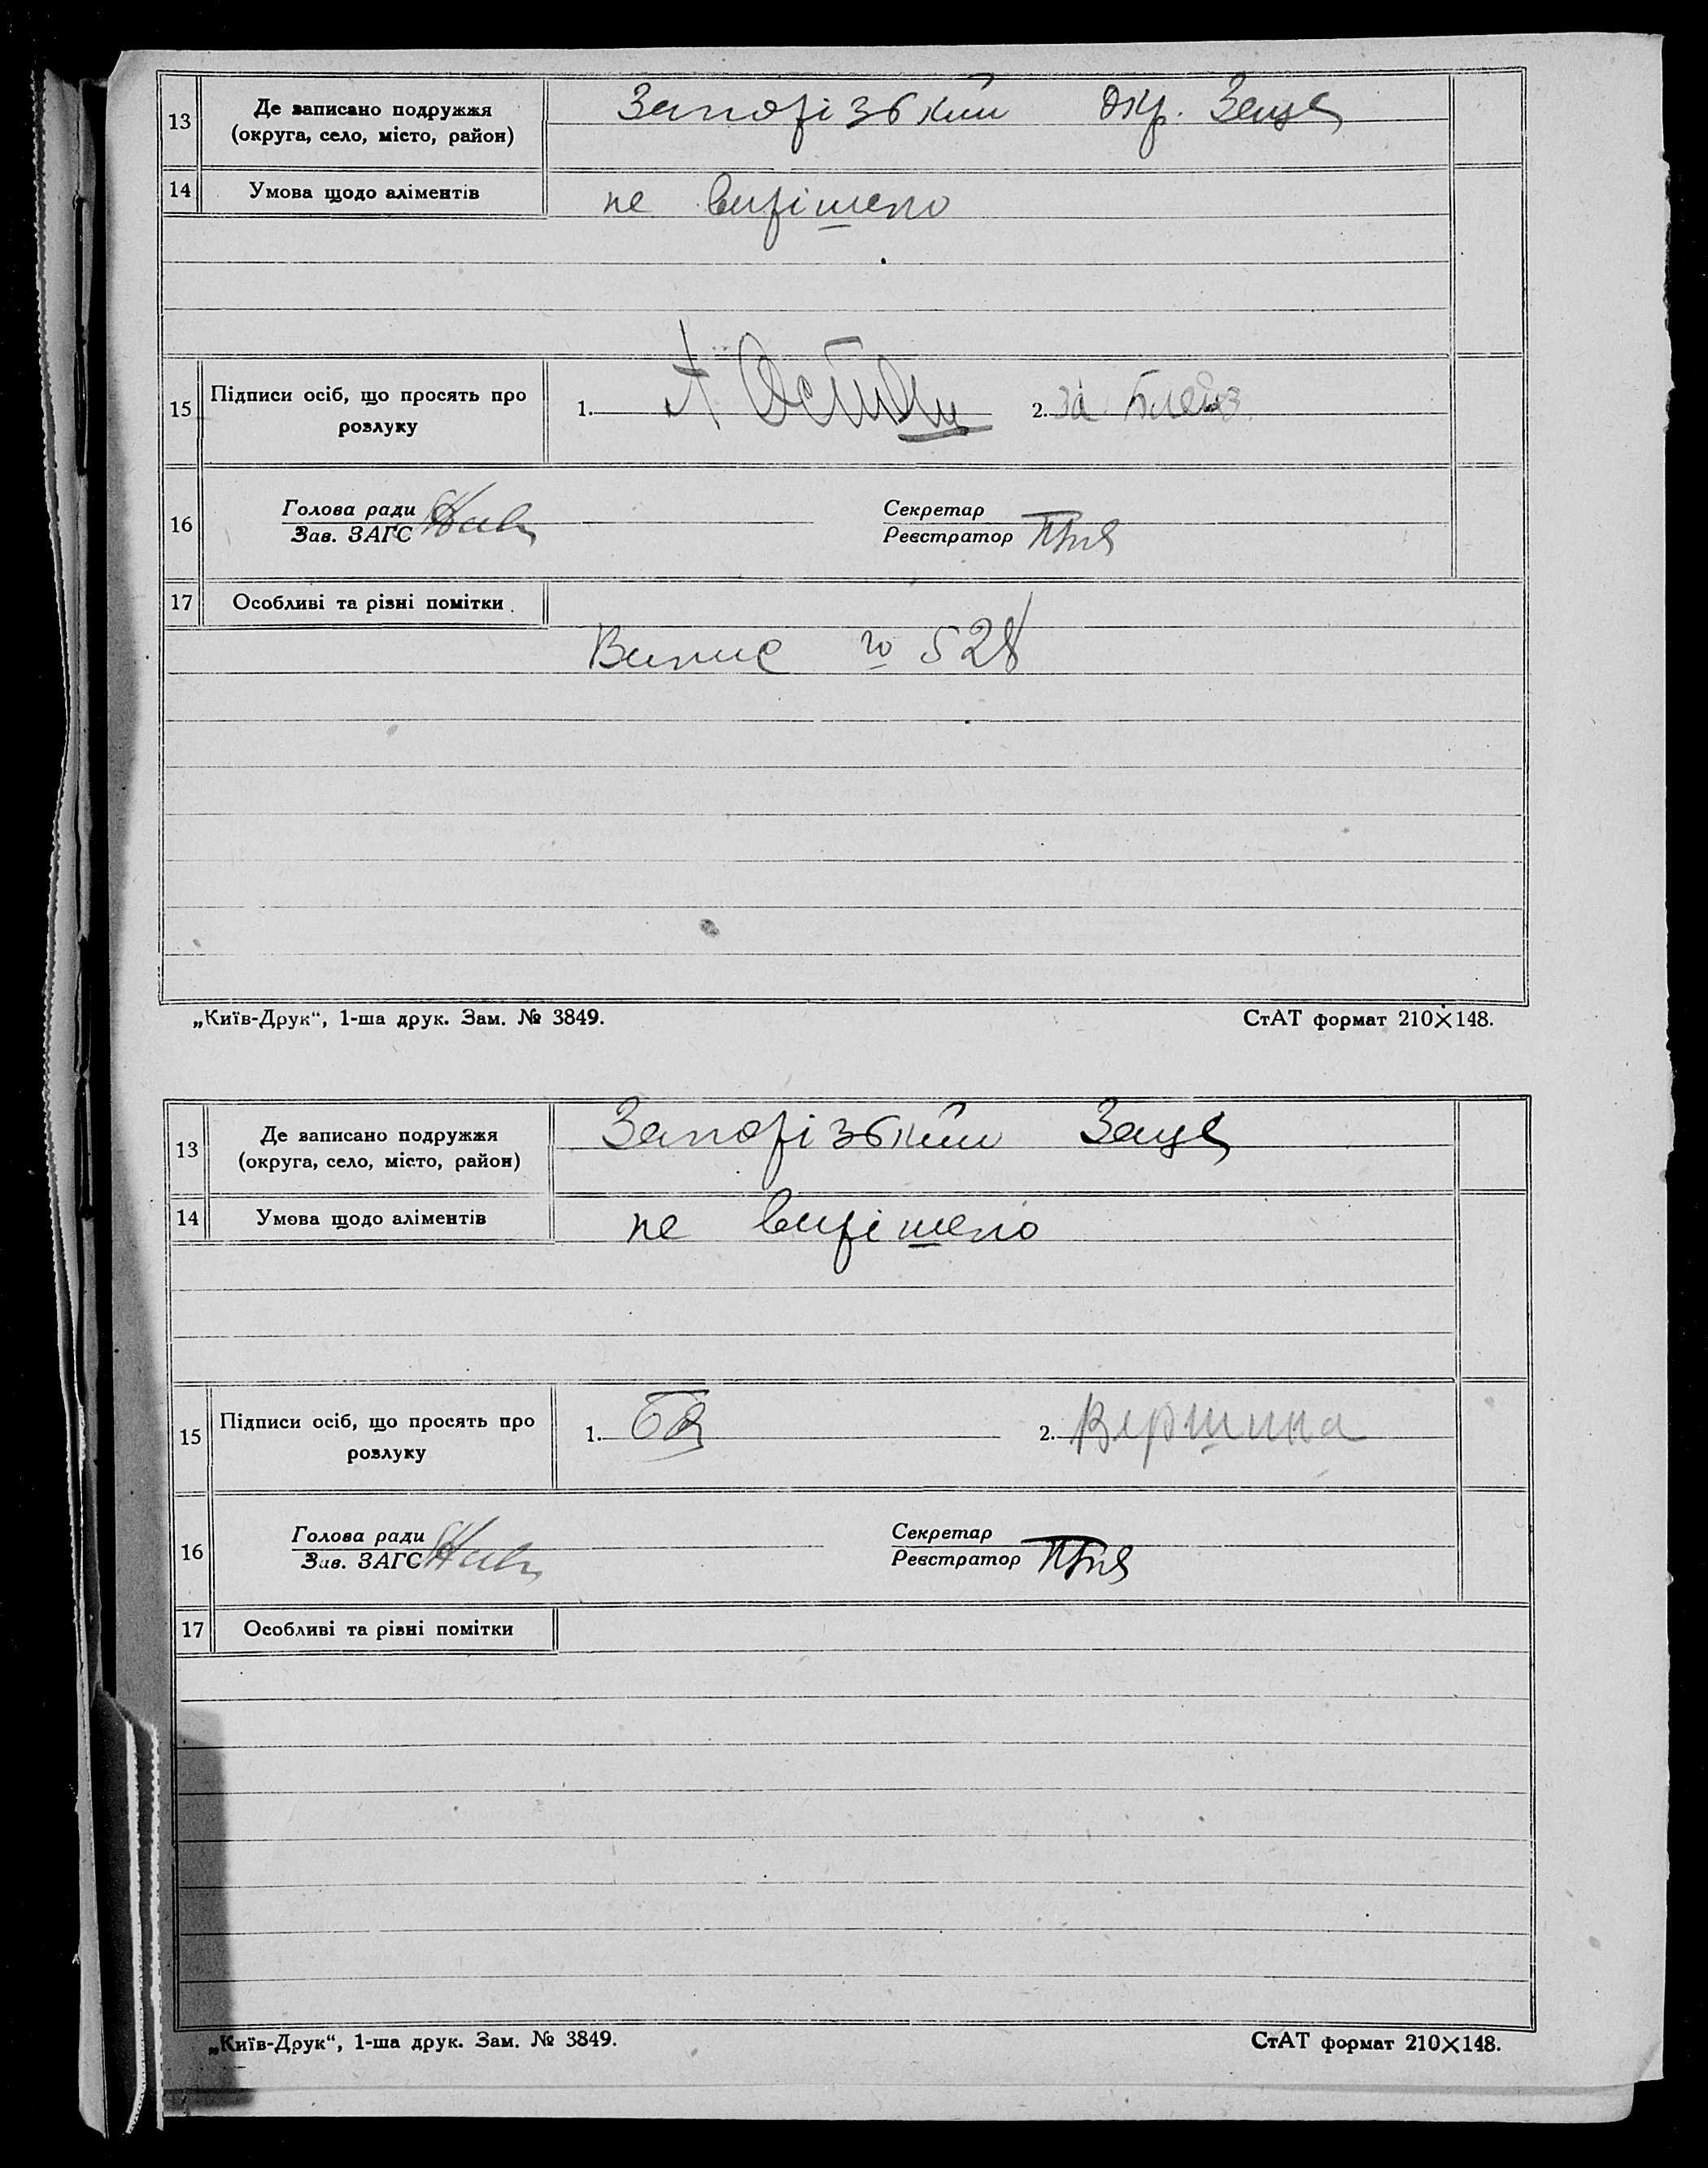 13 Де записано подружжя (округа, село, місто, район) Запорізький окр. Загс
14 Умова щодо аліментів не вирішено
15 Підписи осіб, що просять про розлуку 1. 2. за
16 Голова ради Секретар
Зав. ЗАГС Реєстратор
17 Особливі та різні помітки
Випис № 528
„Київ-Друк“, 1-ша друк. Зам. № 3849. СтАТ формат 210×148.
13 Де записано подружжя (округа, село, місто, район) Запорізький Загс
14 Умова щодо аліментів не вирішено
15 Підписи осіб, що просять про розлуку 1. 2. Вершина
16 Голова ради Секретар
Зав. ЗАГС Реєстратор
17 Особливі та різні помітки
„Київ-Друк“, 1-ша друк. Зам. № 3849. СтАТ формат 210×148.